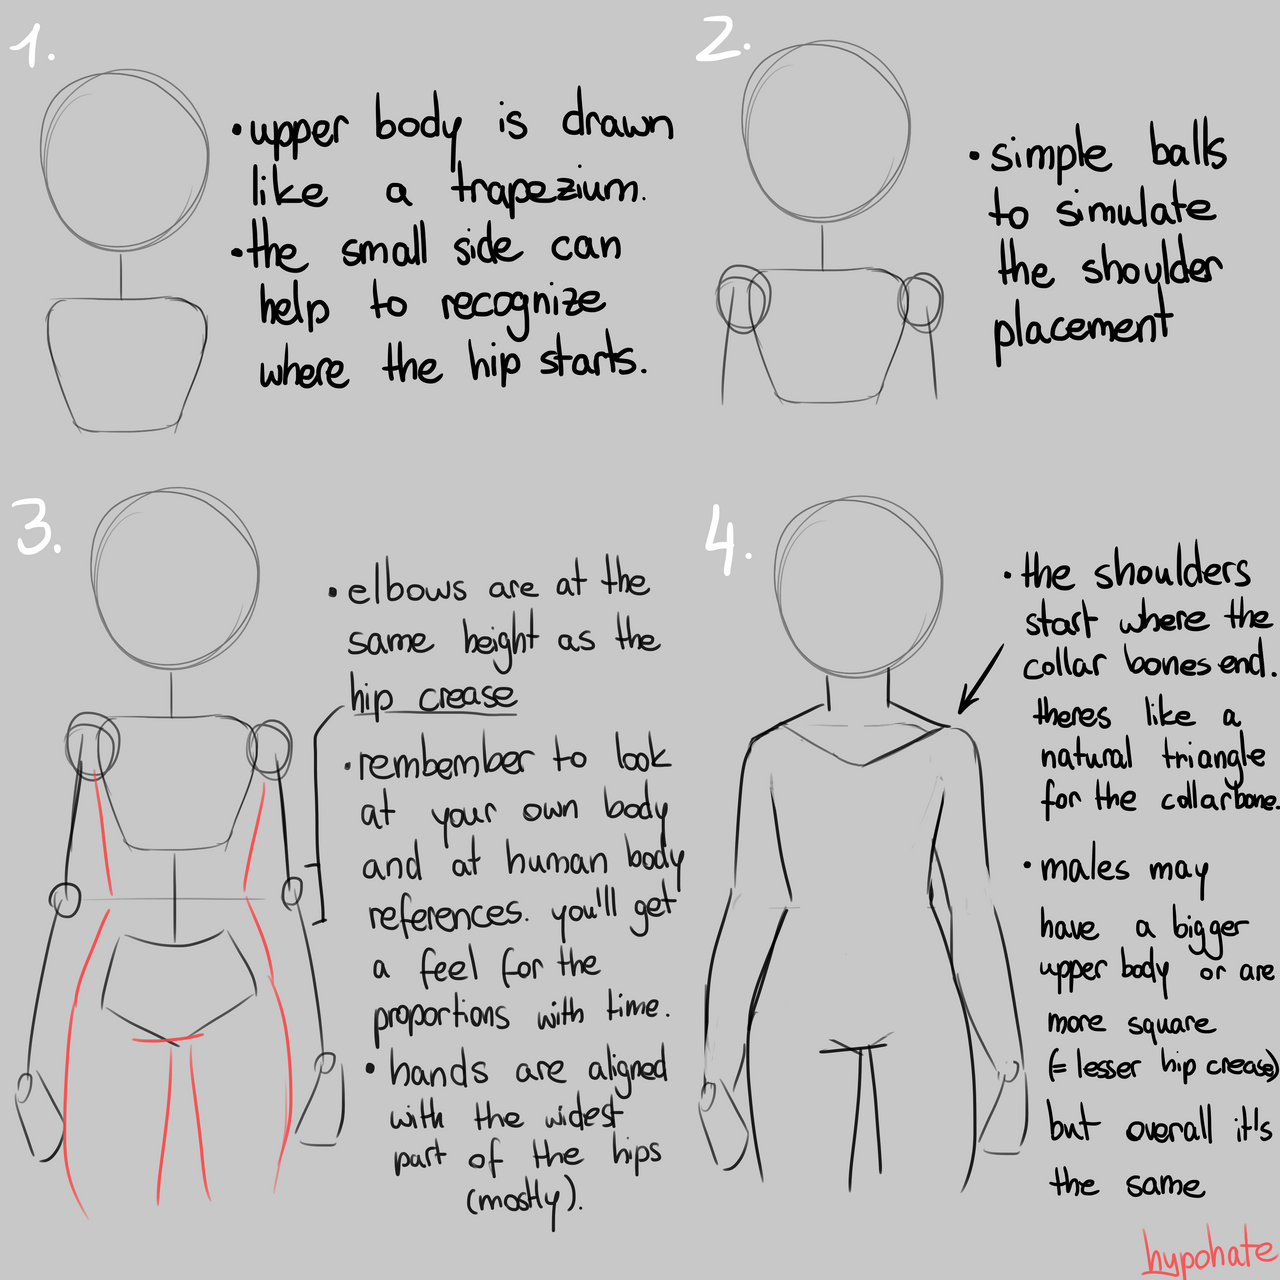 1.
• upper body is drawn
like a trapezium.
• the small side can
help to recognize
where the hip starts.
2.
• simple balls
to simulate
the shoulder
placement
3.
• elbows are at the
same height as the
hip crease
• rembember to look
at your own body
and at human body
references. you'll get
a feel for the
proportions with time.
• hands are aligned
with the widest
part of the hips
(mostly).
4.
• the shoulders
start where the
collar bones end.
theres like a
natural triangle
for the collarbone.
• males may
have a bigger
upper body or are
more square
(= lesser hip crease)
but overall it's
the same
hypohate